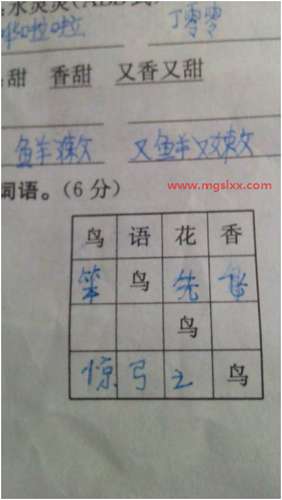 水灵灵(ABB式
啦啦 丁零零
甜 香甜 又香又甜
鲜嫩 又鲜又嫩
www.mgslxx.com
词语。(6分)
鸟 语 花 香
笨 鸟 先 飞
鸟
惊 弓 之 鸟